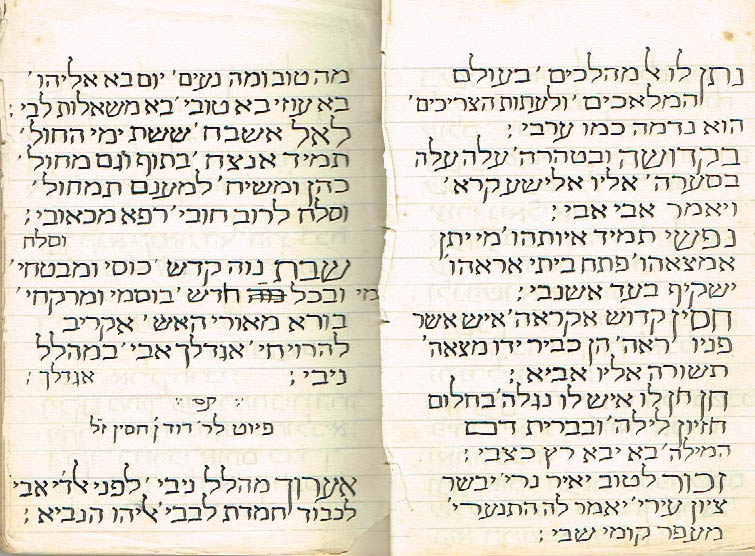 נתן לו אל מהלכים ׳בעולם
המלאכים ׳ולעתות הצריכים׳
הוא נדמה כמו ערבי ;
בקדושה ובטהרה׳ עלה עלה
בסערה׳ אליו אלישע קרא׳
ויאמר אבי אבי ;
נפשי תמיד איותהו׳ מי יתן
אמצאהו׳ פתח ביתי אראהו׳
ישקיף בעד אשנבי ;
חסין קדוש אקראה׳ איש אשר
פניו יראה׳ הן כביר ידו מצאה׳
תשורה אליו אביא ;
חן חן לו איש לו נגלה׳ בחלום
חזיון לילה׳ ובברית
המילה׳ בא יבא רץ כצבי ;
זכור לטוב יאיר נרי׳ יבשר
ציון עירי׳ יאמר לה התנערי׳
מעפר קומי שבי ;
מה טוב ומה נעים׳ יום בא אליהו׳
בא עוזי בא טובי׳ בא משאלות לבי ;
לאל אשבח׳ ששת ימי החול׳
תמיד אנצח׳ בתוף וגם מחול׳
כהן ומשיח׳ למענם תמחול׳
וסלח לרוב חובי׳ רפא מכאובי ;
וסלח
שבת נוה קדש ׳כוסי ומבטחי׳
מי ובכל חדש ׳בוסמי ומרקחי׳
בורא מאורי האש׳ אקריב
להרויחי׳ אנדלך אבי׳ במהלל
ניבי ; אנדלך ;
קסו
פיוט לר׳ דוד ן׳ חסין ז״ל
אערוך מהלל ניבי ׳לפני אלדי אבי׳
לכבוד חמדת לבבי׳ אליהו הנביא ;